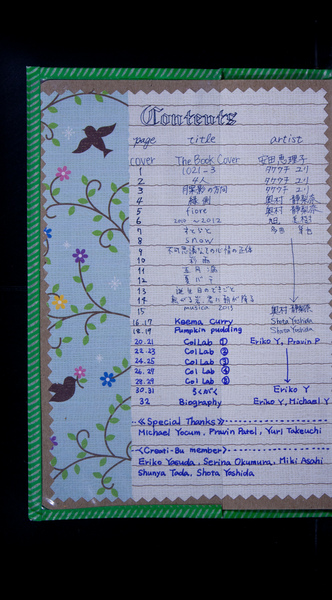 Contents
page title artist
cover The Book Cover 安田恵理子
1 1021-3 タケウチ ユリ
2 4人 タケウチ ユリ
3 タケウチ ユリ
4 縁側 奥村 静梨奈
5 fiore 奥村 静梨奈
6 2010 ~ 2012 旭
7 すとらと
8 snow
9
10
11
12
13 誕生日のできごと
14
15 musica 2013 奥村 静梨奈
16.17 Keema Curry Shota Yoshida
18.19 Pumpkin pudding Shota Yoshida
20.21 Collab ① Eriko Y, Pravin P
22.23 Collab ②
24.25 Collab ③
26.27 Collab ④
28.29 Collab ⑤
30.31 らくがく Eriko Y
32 Biography Eriko Y, Michael Y
《Special Thanks》
Michael Yocum, Pravin Patel, Yuri Takeuchi
<Creati-Bu member>
Eriko Yasuda, Serina Okumura, Miki Asahi
Shunya Tada, Shota Yoshida